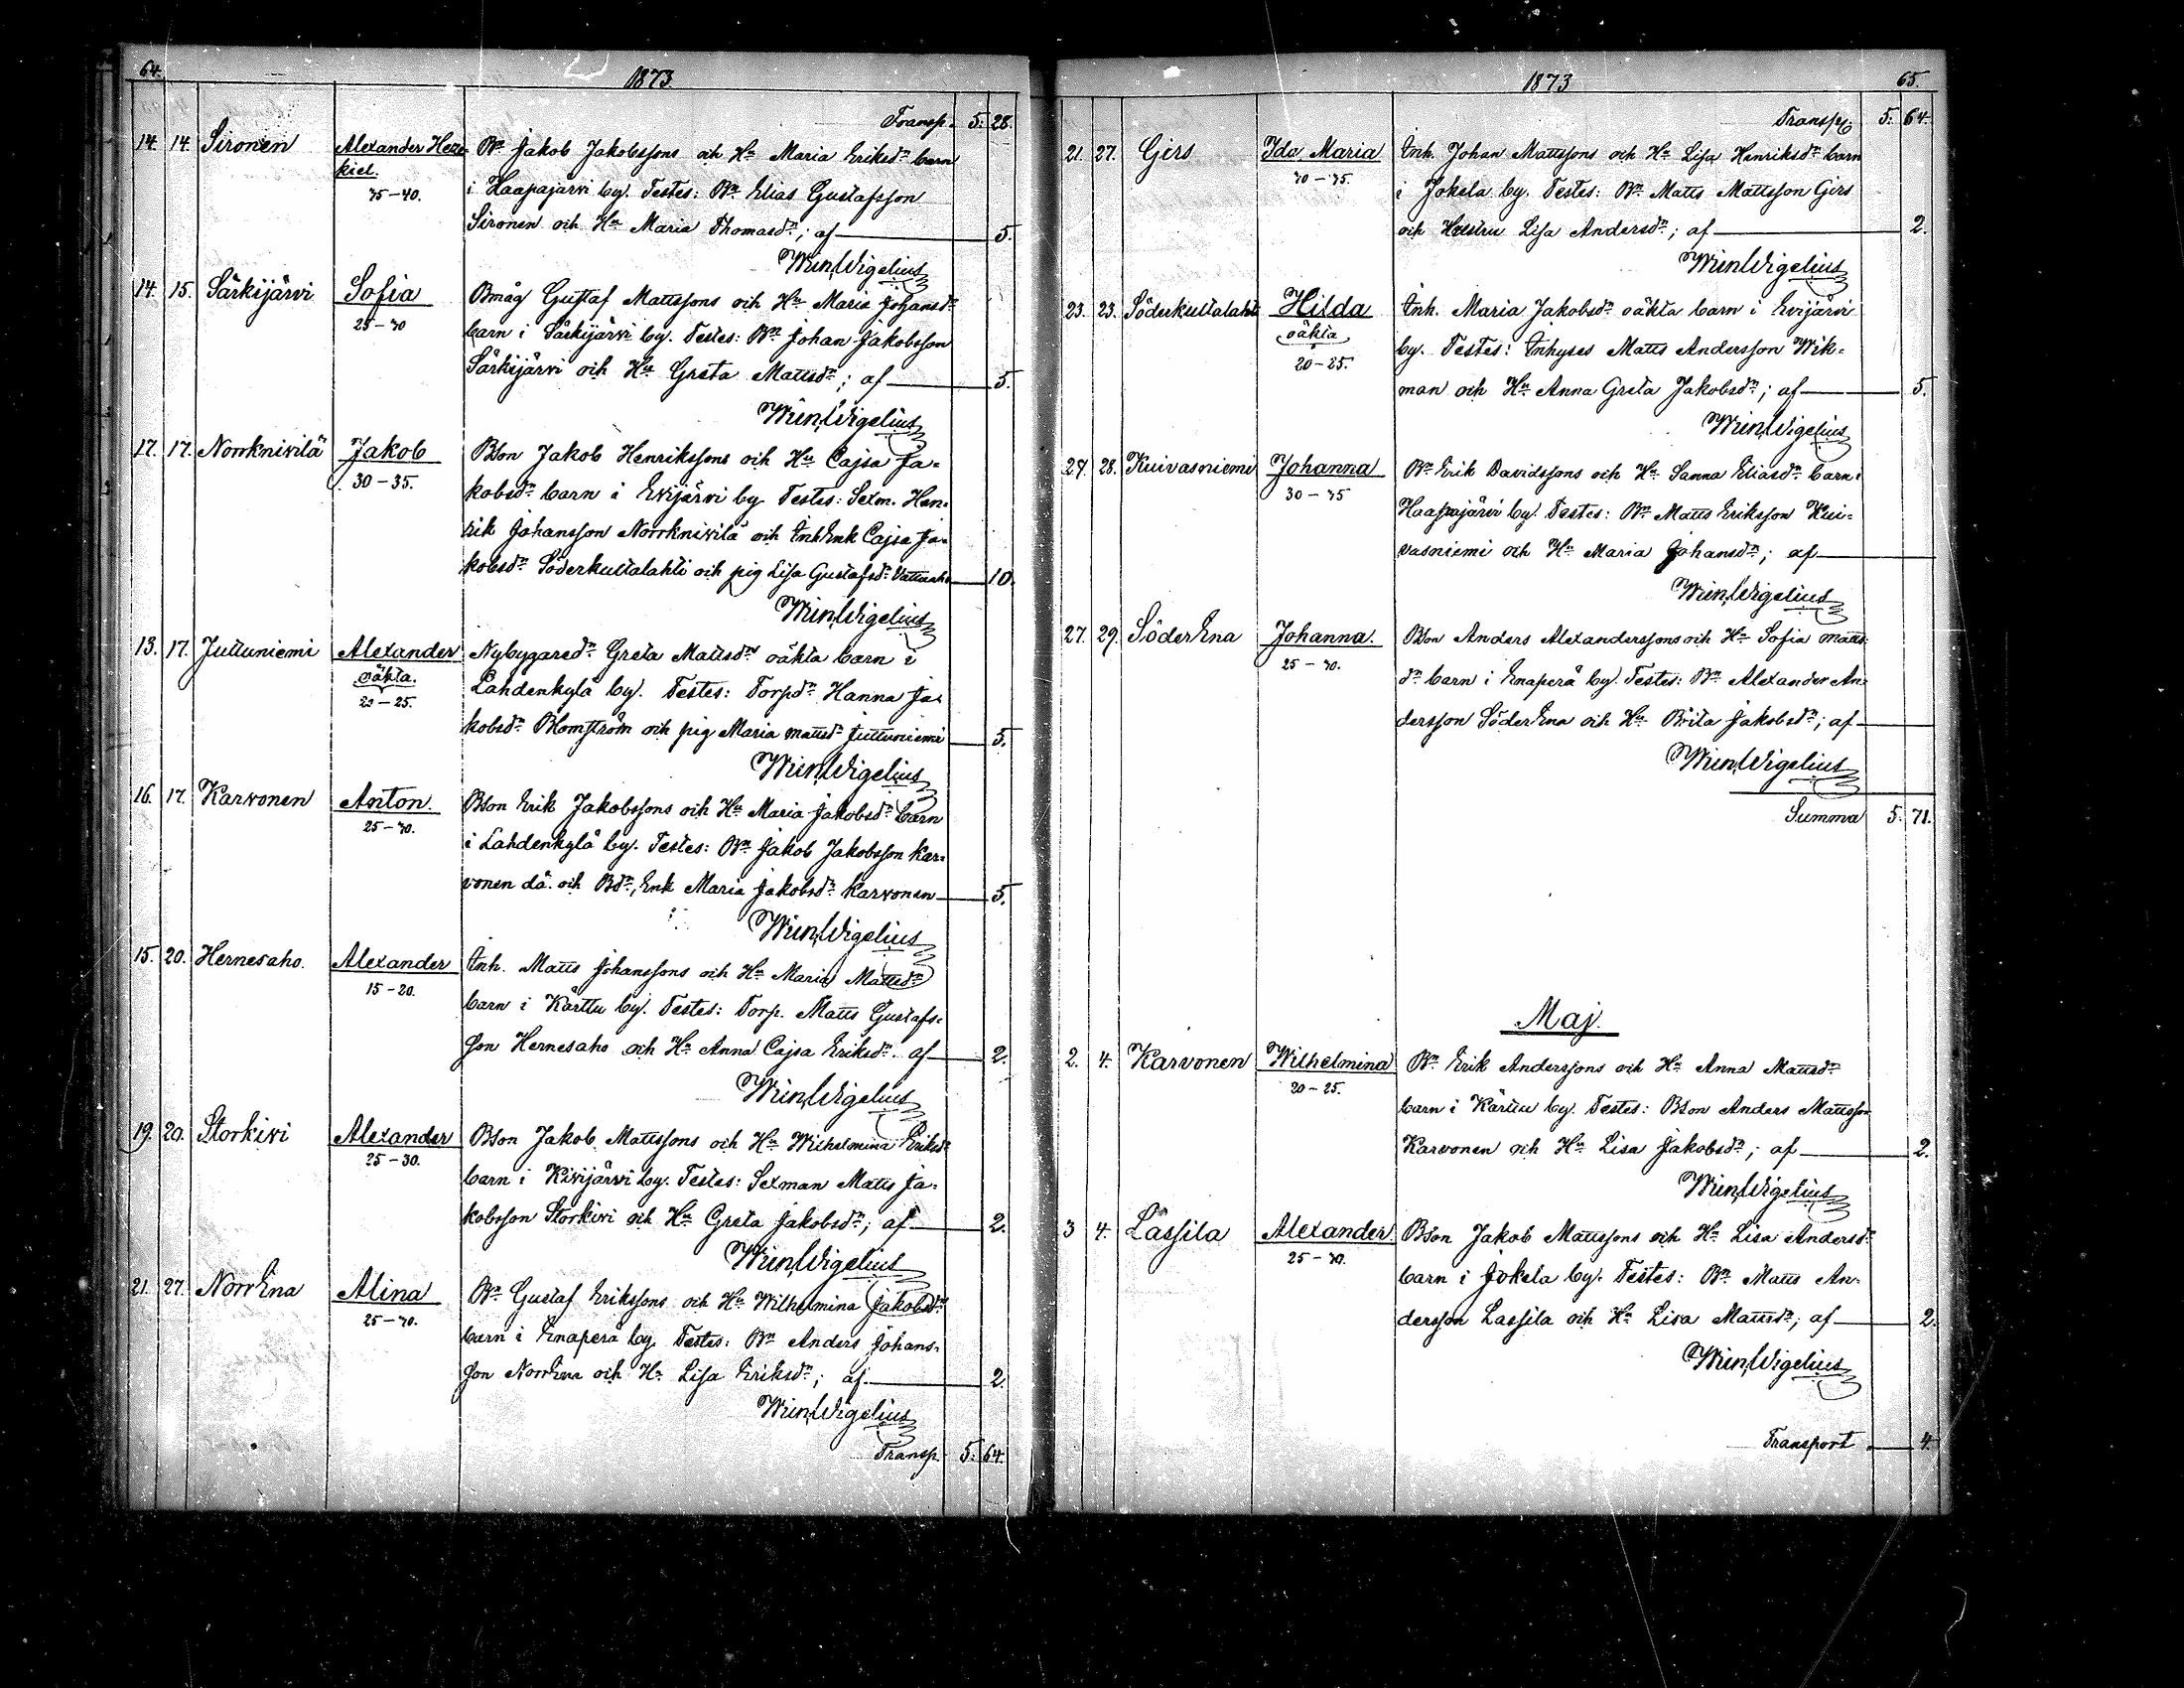 64.
1873.
Transp. 5. 28.
14. 14. Sironen Alexander Heze- Bn Jakob Jakobssons och Hu Maria Eriksdr barn
kiel. i Haapajärvi by. Testes: Bn Elias Gustafsson
35-40. Sironen och Hu Maria Thomasdr; af 5.
Wm Wigelius
14. 15. Särkijärvi Sofia Bmåg Gustaf Mattssons och Hu Maria Johansdr
25-30 barn i Särkijärvi by. Testes: Bn Johan Jakobsson
Särkijärvi och Hu Greta Mattsdr; af 5.
Wm Wigelius
17. 17. Norrknivilä Jakob Bson Jakob Henrikssons och Hu Cajsa Ja-
30-35. kobsdr barn i Evijärvi by. Testes: Sexm. Hen-
rik Johansson Norrknivilä och Inh Enk Cajsa Ja-
kobsdr Söderkultalahti och pig Lisa Gustafsdr 10.
Wm Wigelius
13. 17. Jutuniemi Alexander Nybygaredr Greta Mattsdr oäkta barn i
oäkta. Lahdenkylä by. Testes: Torpdr Hanna Ja-
20-25. kobsdr Blomström och pig Maria Mattsdr Jutuniemi 5.
Wm Wigelius
16. 17. Karvonen Anton. Bson Erik Jakobssons och Hu Maria Jakobsdr barn
25-30. i Lahdenkylä by. Testes: Bn Jakob Jakobsson Kar-
vonen då. och Bdr, Enk Maria Jakobsdr Karvonen 5.
Wm Wigelius
15. 20. Hernesaho. Alexander Inh. Matts Johanssons och Hu Maria Mattsdr
15-20. barn i Kärttu by. Testes: Torp. Matts Gustafs-
son Hernesaho och Hu Anna Cajsa Eriksdr. af 2.
Wm Wigelius
19. 20. Storkivi Alexander Bson Jakob Mattssons och Hu Wilhelmina Eriksdr
25-30. barn i Kivijärvi by. Testes: Sexman Matts Ja-
kobsson Storkivi och Hu Greta Jakobsdr; af 2.
Wm Wigelius
21. 27. NorrEna Alina Bn Gustaf Erikssons och Hu Wilhelmina Jakobsdr
25-30. barn i Enaperä by. Testes: Bn Anders Johans-
son NorrEna och Hu Lisa Eriksdr; af 2.
Wm Wigelius
Transp. 5. 64.
1873 65.
Transp. 5. 64.
21. 27. Girs Ida Maria Inh. Johan Mattssons och Hu Lisa Henriksdr barn
30-35. i Jokela by. Testes: Bn Matts Mattsson Girs
och Hustru Lisa Andersdr; af 2.
Wm Wigelius
23. 23. Söderkultalahti Hilda Inh. Maria Jakobsdr oäkta barn i Evijärvi
oäkta by. Testes: Inhyses Matts Andersson Wik-
20-25. man och Hu Anna Greta Jakobsdr; af 5.
Wm Wigelius
27. 28. Kuivasniemi Johanna Bn Erik Davidssons och Hu Sanna Eliasdr barn i
30-35 Haapajärvi by. Testes: Bn Matts Eriksson Kui-
vasniemi och Hu Maria Johansdr; af
Wm Wigelius
27. 29. SöderEna Johanna. Bson Anders Alexanderssons och Hu Sofia Matts-
25-30. dr barn i Enaperä by. Testes: Bn Alexander An-
dersson SöderEna och Hu Brita Jakobsdr; af
Wm Wigelius
Summa 5. 71.
Maj.
2. 4. Karvonen Wilhelmina Bn Erik Anderssons och Hu Anna Mattsdr
20-25. barn i Kärttu by. Testes: Bson Anders Mattsson
Karvonen och Hu Lisa Jakobsdr; af 2.
Wm Wigelius
3 4. Lassila Alexander. Bson Jakob Mattssons och Hu Lisa Andersdr
25-30. barn i Jokela by. Testes: Bn Matts An-
dersson Lassila och Hu Lisa Mattsdr; af 2.
Wm Wigelius
Transport 4.